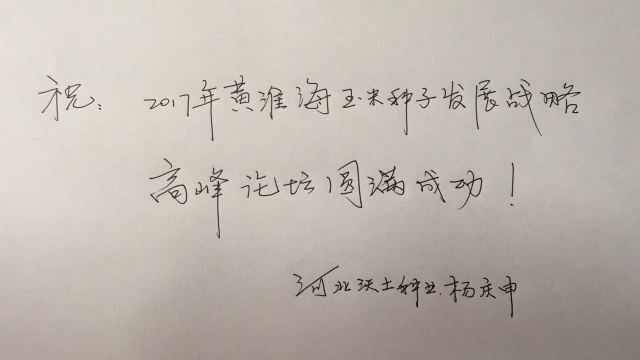 祝：2017年黄淮海玉米种子发展战略
高峰论坛圆满成功！
河北沃土种业.杨庆申